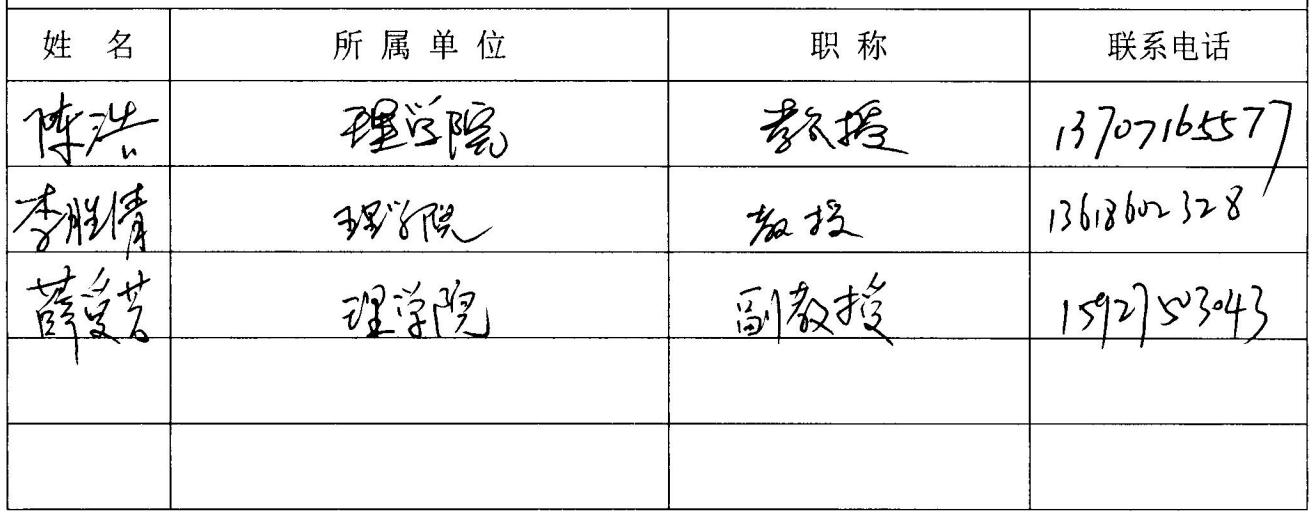 姓 名 所 属 单 位 职 称 联系电话
陈浩 理学院 教授 13707165577
李胜倩 理学院 教授 13618602328
薛爱芳 理学院 副教授 15927503043